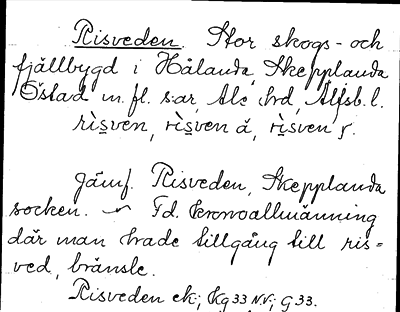 Risveden. Stor skogs- och
fjällbygd i Hålanda, Skepplanda
Östad m. fl. s:ar, Ale hd, Älfsb. l.
rìsven, rìsven å, rìsven
Jämf. Risveden, Skepplanda
socken. Fd. kronoallmänning
där man hade tillgång till ris-
ved, bränsle.
Risveden ek; Kg 33 NV; G 33.